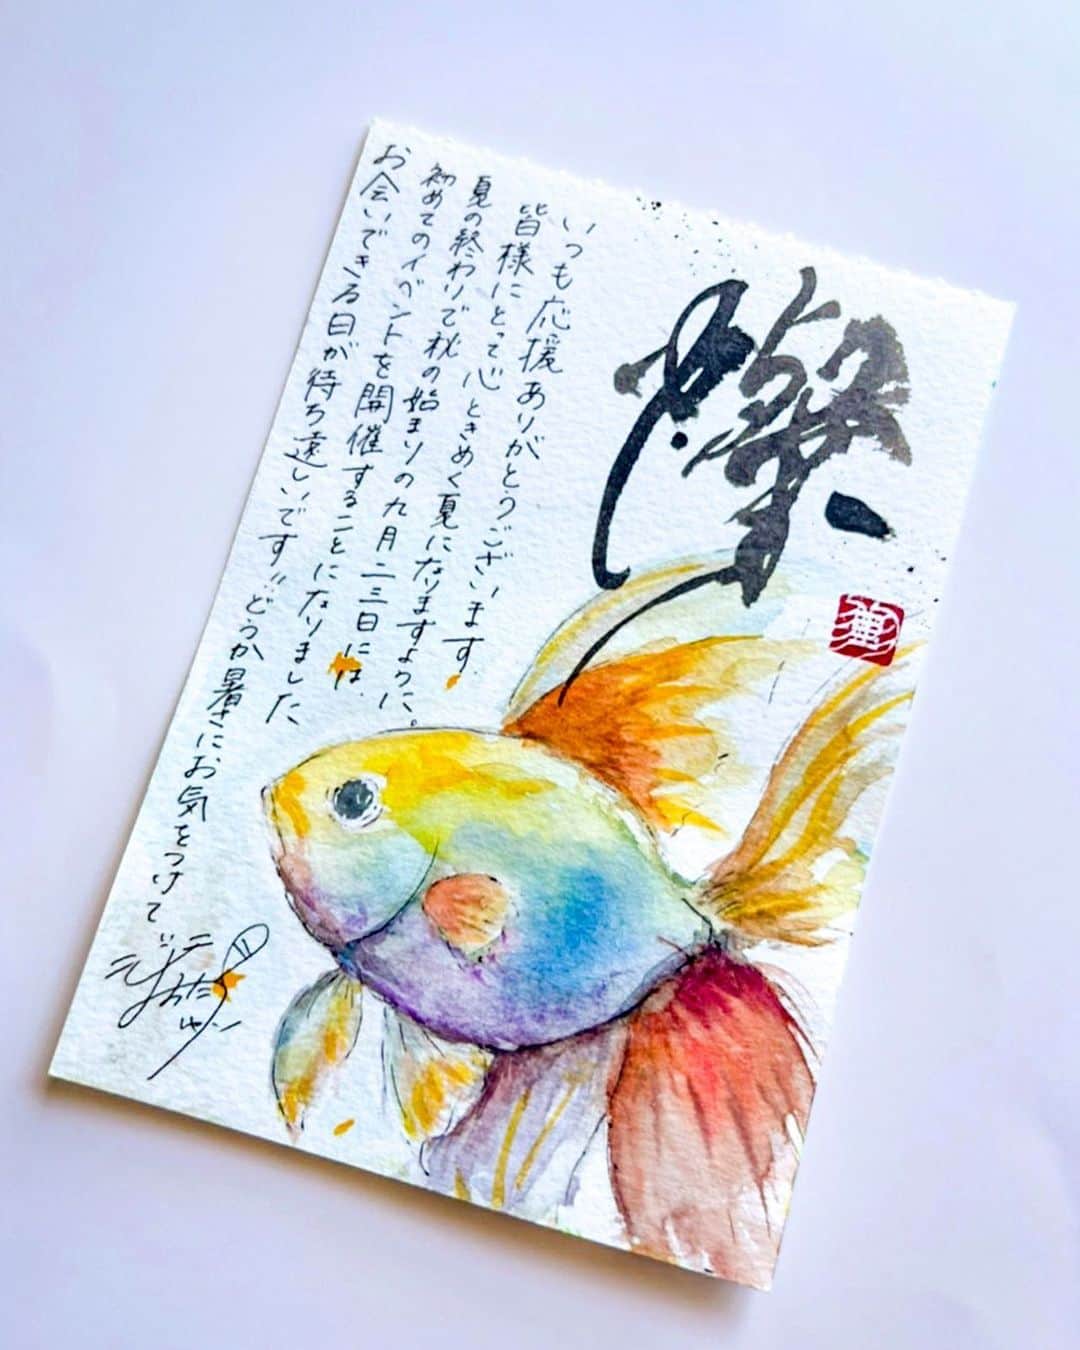 燦
いつも応援ありがとうございます。
皆様にとって心ときめく夏になりますように。
夏の終わりで秋の始まりの九月二三日には、
初めてのイベントを開催することになりました
お会いできる日が待ち遠しいです!!どうか暑さにお気をつけて!!